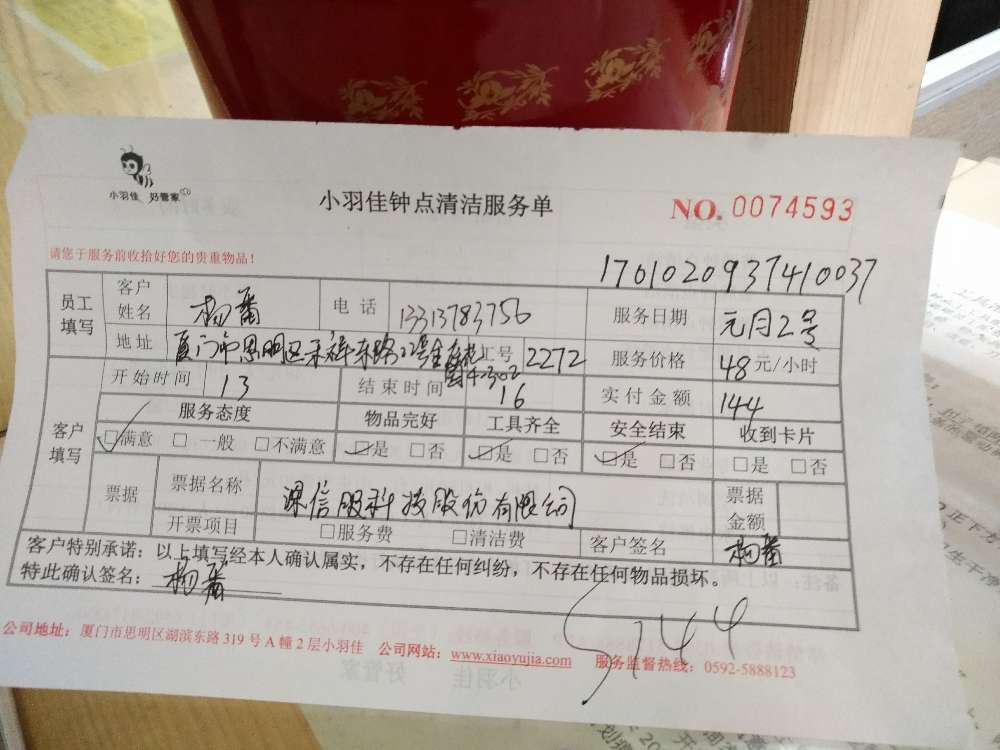 小羽佳 好管家
小羽佳钟点清洁服务单
NO. 0074593
请您于服务前收拾好您的贵重物品！
1701020937410037
员工填写 客户姓名 杨蕾 电话 13313783756 服务日期 元月2号
地址 厦门市思明区禾祥东路22号 工号 2272 服务价格 48元/小时
开始时间 13 结束时间 16 实付金额 144
客户填写 服务态度 物品完好 工具齐全 安全结束 收到卡片
☑满意 □一般 □不满意 ☑是 □否 ☑是 □否 ☑是 □否 □是 □否
票据 票据名称 深信服科技股份有限公司 票据金额
开票项目 □服务费 □清洁费 客户签名 杨蕾
客户特别承诺：以上填写经本人确认属实，不存在任何纠纷，不存在任何物品损坏。
特此确认签名：杨蕾
公司地址：厦门市思明区湖滨东路319号A幢2层小羽佳 公司网站：www.xiaoyujia.com 服务监督热线：0592-5888123